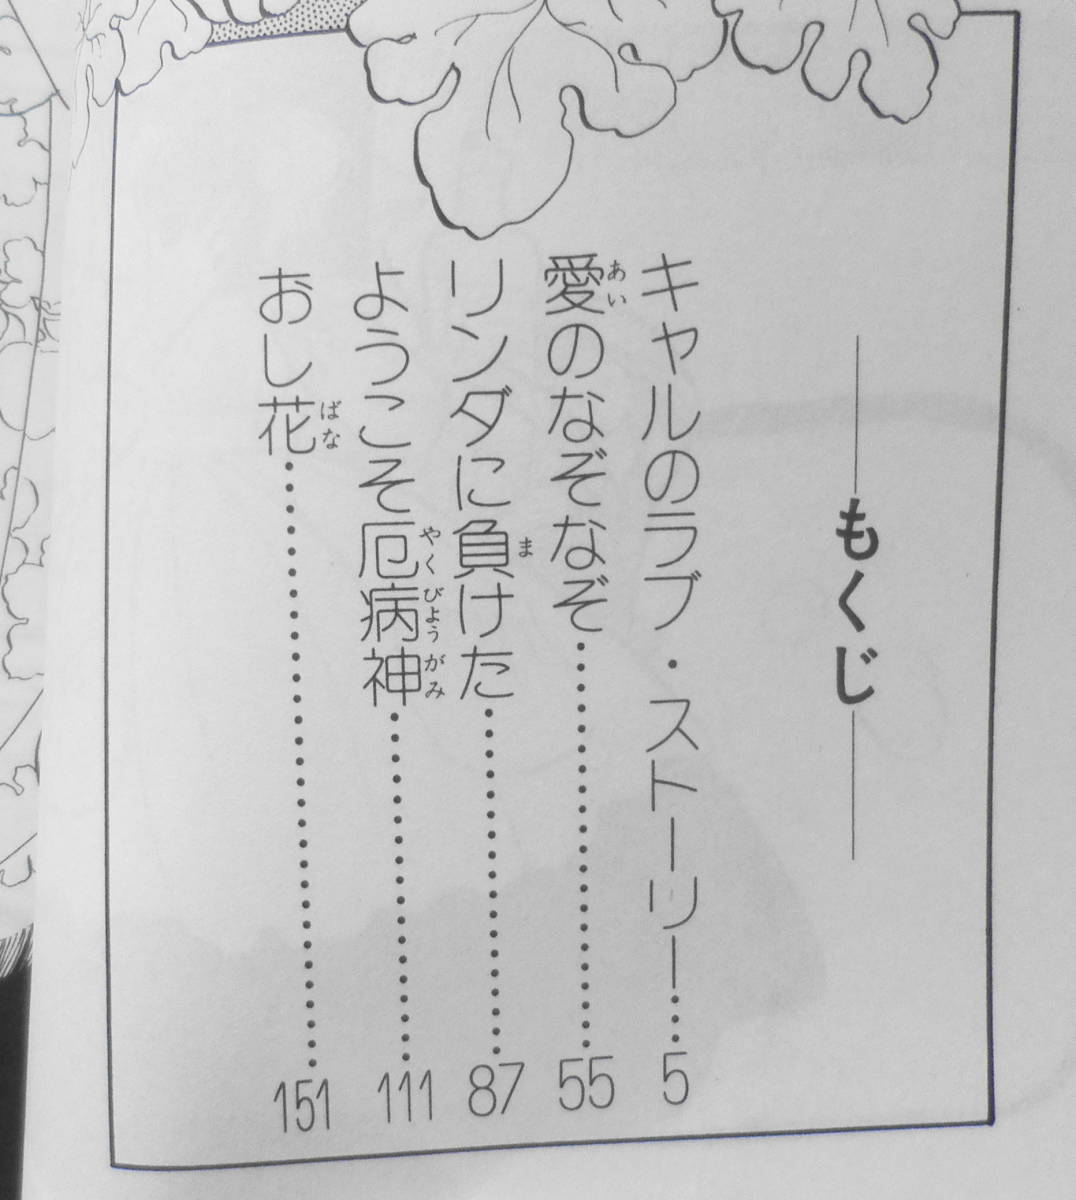 もくじ
キャルのラブ・ストーリー……5
愛のなぞなぞ……55
リンダに負けた……87
ようこそ厄病神……111
おし花……151